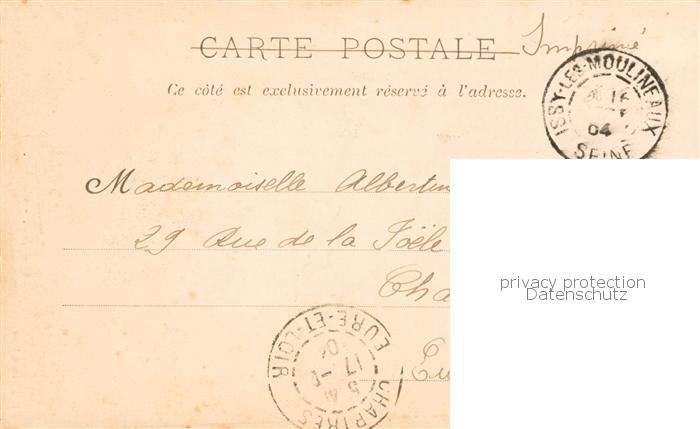 CARTE POSTALE
Imprimé
Ce côté est exclusivement réservé à l'adresse.
ISSY-LES-MOULINEAUX
16
04
SEINE
Mademoiselle Albertin
29 Rue de la Foële
Cha
Eu
CHARTRES
EURE-ET-LOIR
17
04
privacy protection
Datenschutz